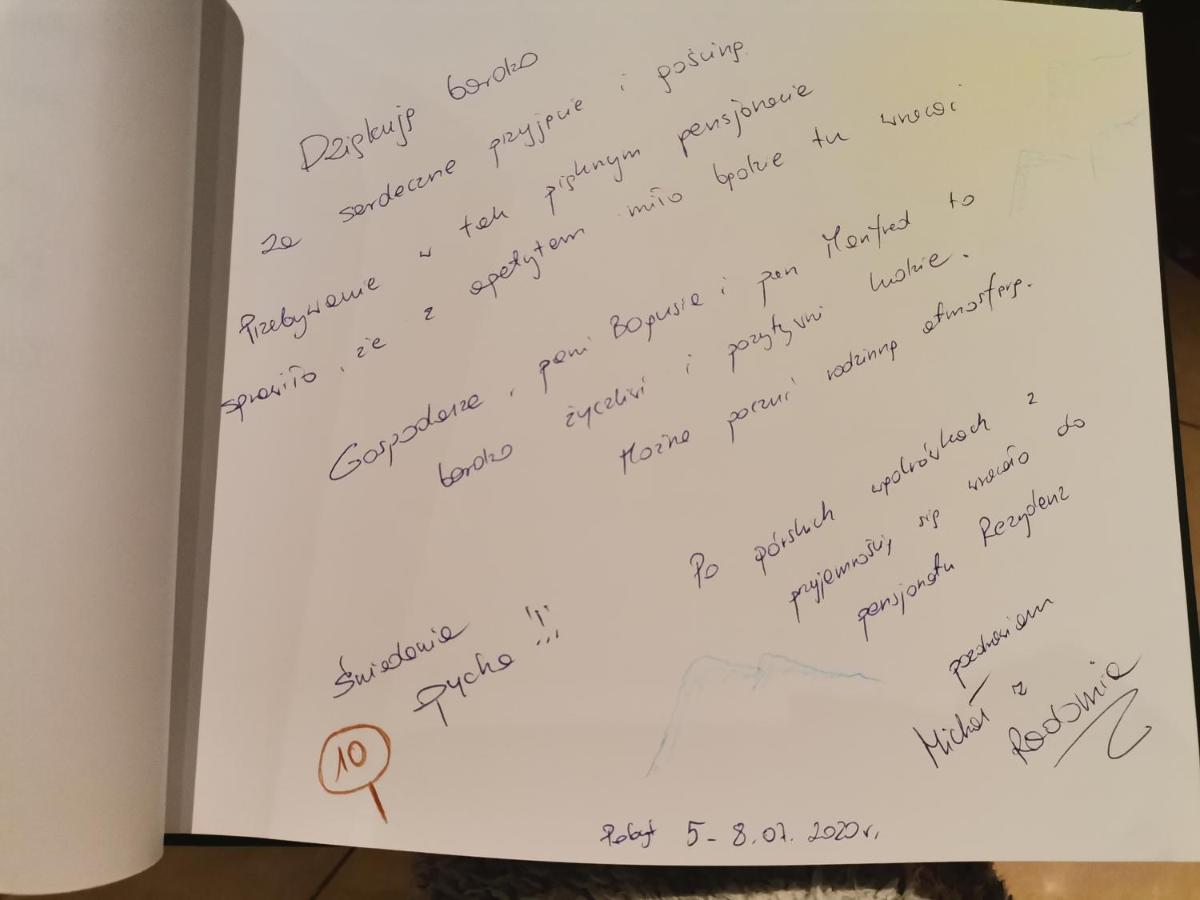 Dziękuję bardzo
za serdeczne przyjęcie i gościnę.
Przebywanie w tak pięknym pensjonacie
sprawiło, że z apetytem miło będzie tu wracać
Gospodarze, pani Bogusia i pan Manfred to
bardzo życzliwi i pozytywni ludzie.
Można poczuć rodzinną atmosferę.
Po górskich wędrówkach z
przyjemnością się wracało do
pensjonatu Rezydenz
Śniadania
Pycha !!!
pozdrawiam
Michał z
Radomia
10
Pobyt 5-8.07.2020r.